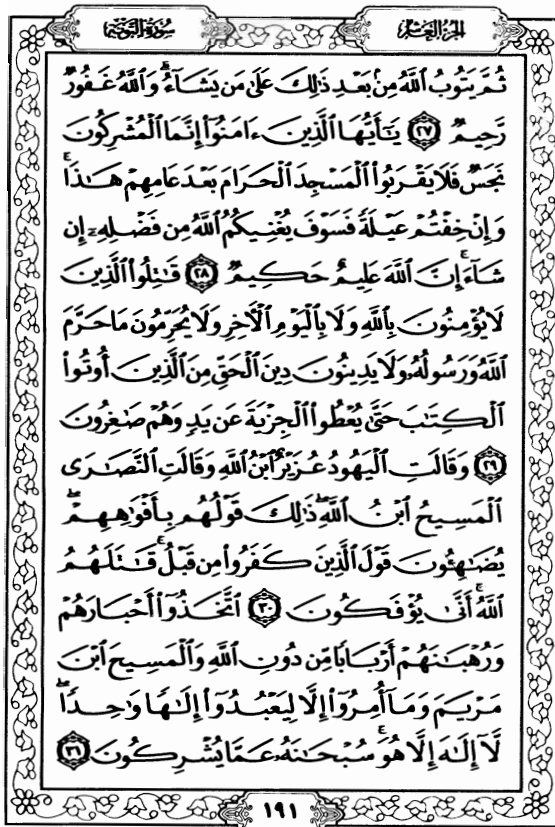 سُورَةُ التَّوْبَةِ
الجزء العاشر
ثُمَّ يَتُوبُ اللَّهُ مِنۢ بَعْدِ ذَٰلِكَ عَلَىٰ مَن يَشَآءُ ۗ وَاللَّهُ غَفُورٌ
رَّحِيمٌ ٢٧ يَـٰٓأَيُّهَا الَّذِينَ ءَامَنُوٓا۟ إِنَّمَا الْمُشْرِكُونَ
نَجَسٌ فَلَا يَقْرَبُوا۟ الْمَسْجِدَ الْحَرَامَ بَعْدَ عَامِهِمْ هَـٰذَا ۚ
وَإِنْ خِفْتُمْ عَيْلَةً فَسَوْفَ يُغْنِيكُمُ اللَّهُ مِن فَضْلِهِۦٓ إِن
شَآءَ ۚ إِنَّ اللَّهَ عَلِيمٌ حَكِيمٌ ٢٨ قَـٰتِلُوا۟ الَّذِينَ
لَا يُؤْمِنُونَ بِاللَّهِ وَلَا بِالْيَوْمِ الْـَٔاخِرِ وَلَا يُحَرِّمُونَ مَا حَرَّمَ
اللَّهُ وَرَسُولُهُۥ وَلَا يَدِينُونَ دِينَ الْحَقِّ مِنَ الَّذِينَ أُوتُوا۟
الْكِتَـٰبَ حَتَّىٰ يُعْطُوا۟ الْجِزْيَةَ عَن يَدٍ وَهُمْ صَـٰغِرُونَ
٢٩ وَقَالَتِ الْيَهُودُ عُزَيْرٌ ابْنُ اللَّهِ وَقَالَتِ النَّصَـٰرَى
الْمَسِيحُ ابْنُ اللَّهِ ۖ ذَٰلِكَ قَوْلُهُم بِأَفْوَٰهِهِمْ ۖ
يُضَـٰهِـُٔونَ قَوْلَ الَّذِينَ كَفَرُوا۟ مِن قَبْلُ ۚ قَـٰتَلَهُمُ
اللَّهُ ۚ أَنَّىٰ يُؤْفَكُونَ ٣٠ اتَّخَذُوٓا۟ أَحْبَارَهُمْ
وَرُهْبَـٰنَهُمْ أَرْبَابًا مِّن دُونِ اللَّهِ وَالْمَسِيحَ ابْنَ
مَرْيَمَ وَمَآ أُمِرُوٓا۟ إِلَّا لِيَعْبُدُوٓا۟ إِلَـٰهًا وَٰحِدًا ۖ
لَّآ إِلَـٰهَ إِلَّا هُوَ ۚ سُبْحَـٰنَهُۥ عَمَّا يُشْرِكُونَ ٣١
١٩١